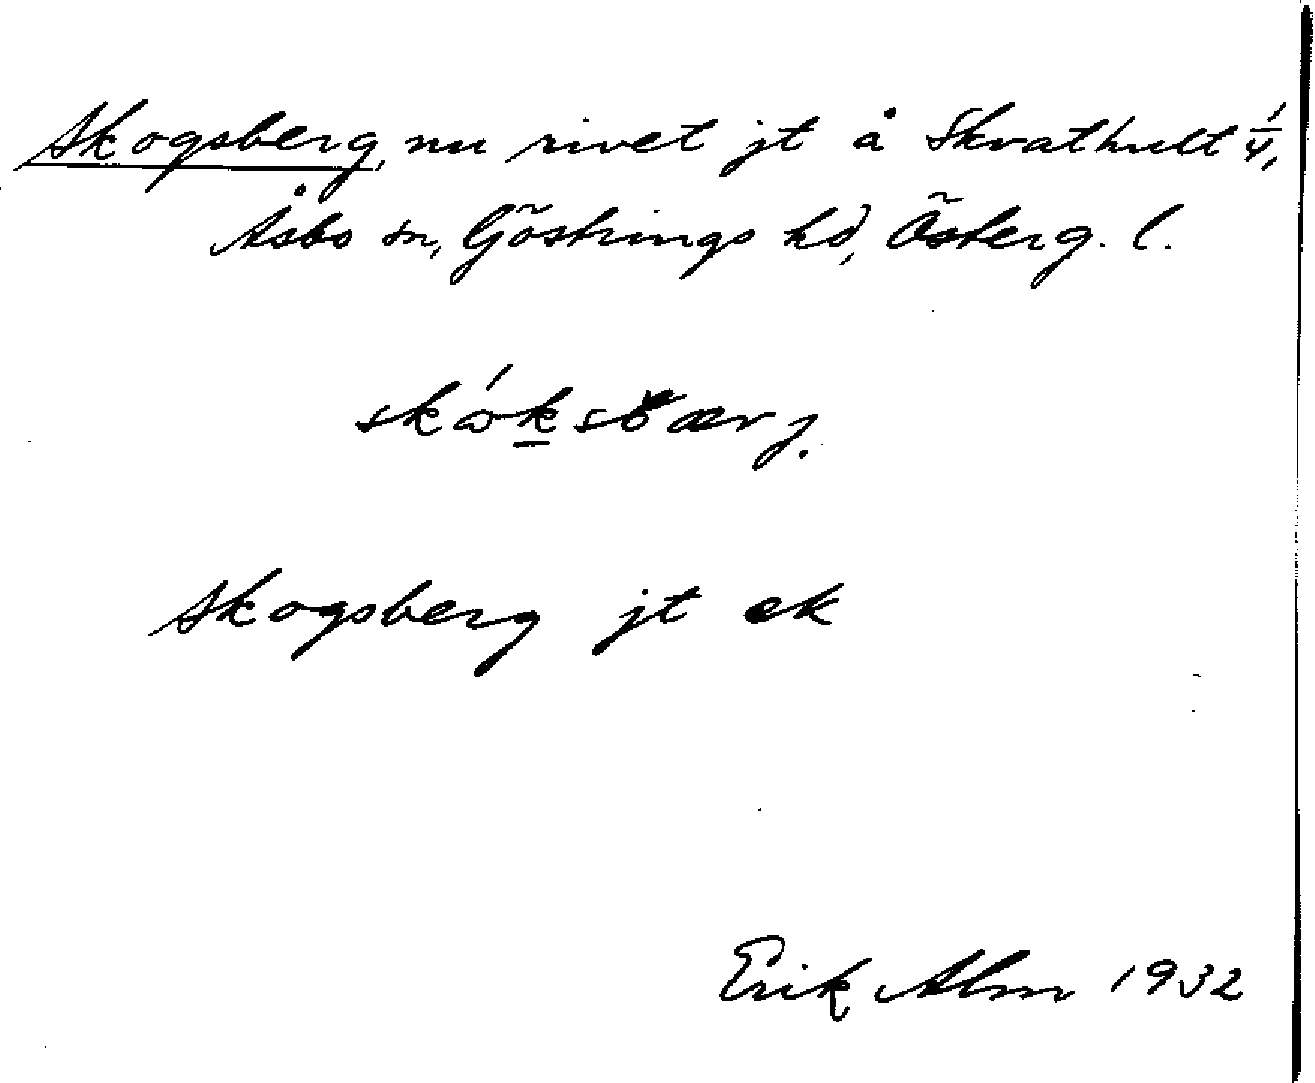 Skogsberg, nu rivet jt å Skvathult 1/4,
Åsbo sn, Göstrings hd, Österg. l.
skóksbærj.
Skogsberg jt ek
Erik Alm 1932